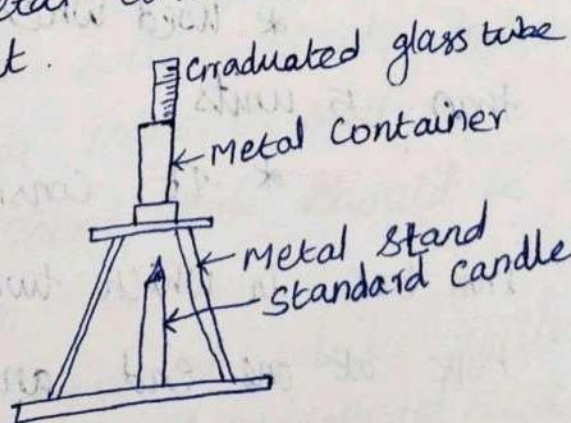 t.
Graduated glass tube
Metal Container
Metal stand
Standard candle